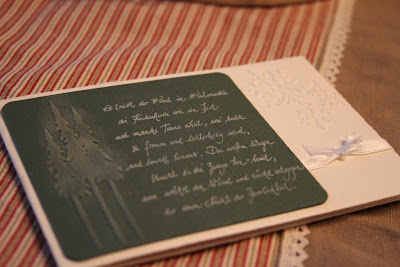 Es treibt der Wind im Winterwalde
die Flockenherde wie ein Hirt
und manche Tanne ahnt, wie balde
sie fromm und lichterheilig wird,
und lauscht hinaus. Den weißen Wegen
streckt sie die Zweige hin - bereit,
und wehrt dem Wind und wächst entgegen
der einen Nacht der Herrlichkeit.